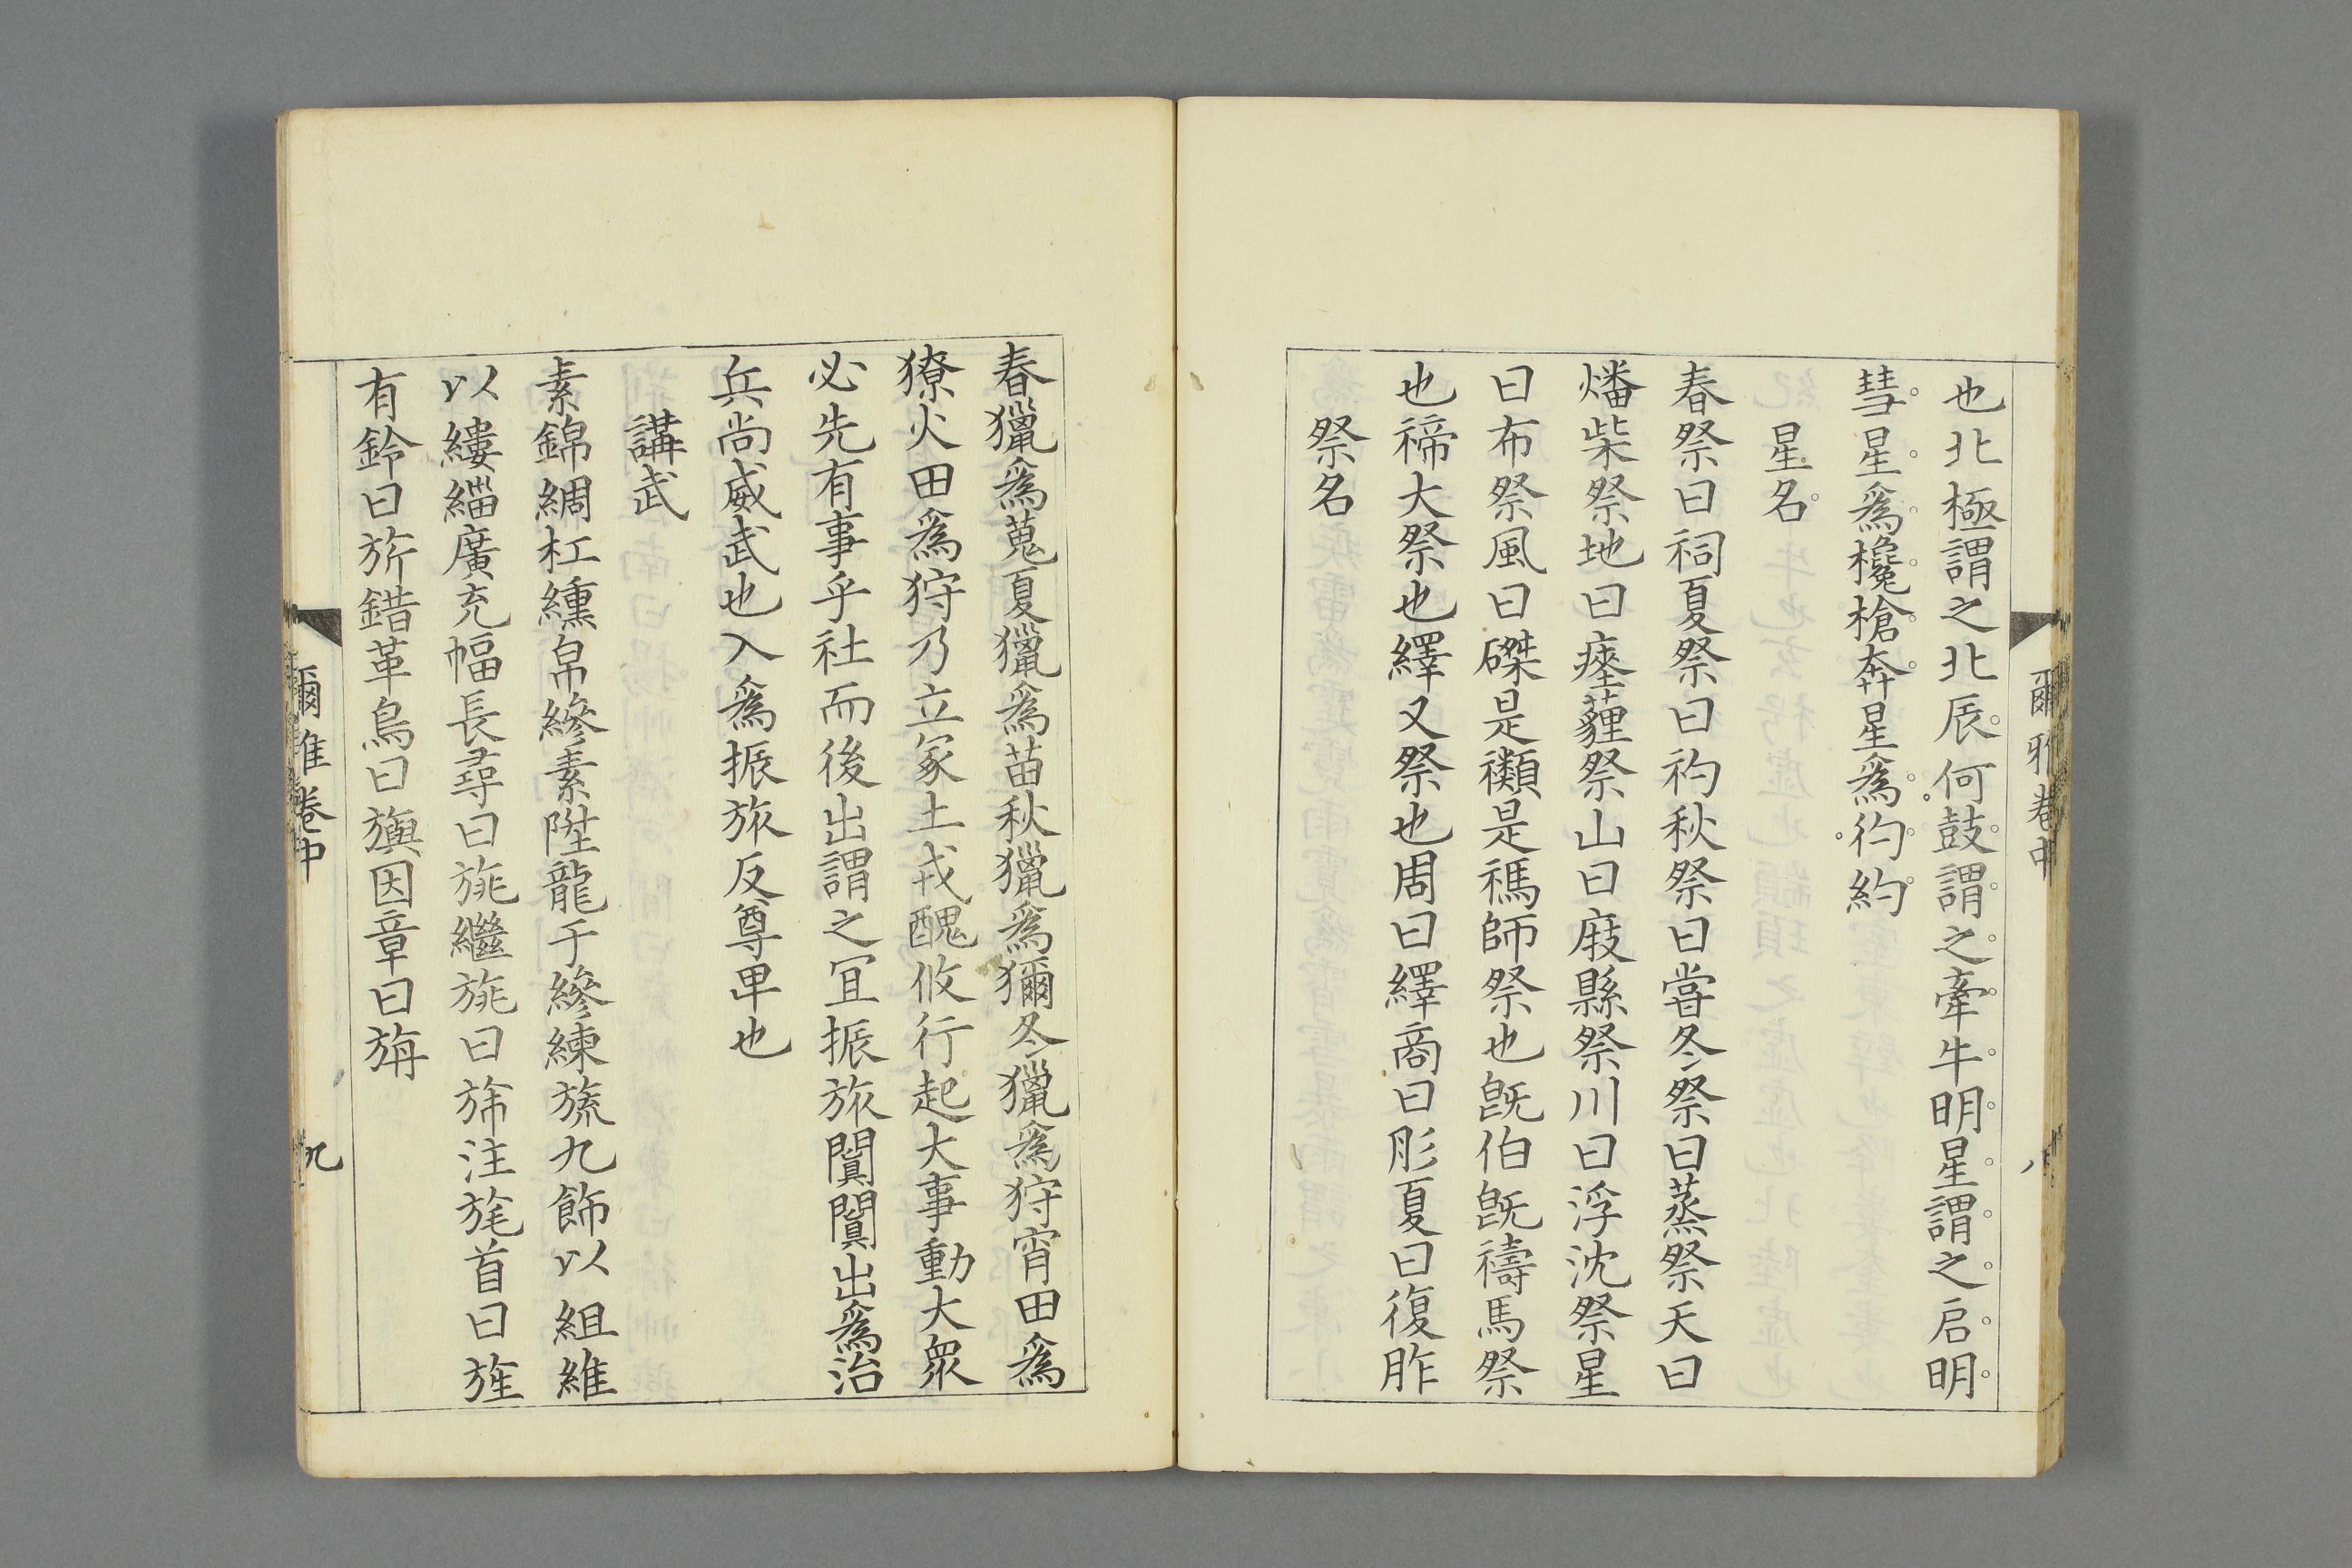 爾雅卷中
八
也北極謂之北辰何鼓謂之牽牛明星謂之启明
彗星爲欃槍奔星爲彴約
星名
春祭曰祠夏祭曰礿秋祭曰嘗冬祭曰蒸祭天曰
燔柴祭地曰瘞薶祭山曰庪縣祭川曰浮沈祭星
曰布祭風曰磔是禷是禡師祭也旣伯旣禱馬祭
也禘大祭也繹又祭也周曰繹商曰肜夏曰復胙
祭名
春獵爲蒐夏獵爲苗秋獵爲獮冬獵爲狩宵田爲
獠火田爲狩乃立冢土戎醜攸行起大事動大衆
必先有事乎社而後出謂之宜振旅闐闐出爲治
兵尚威武也入爲振旅反尊卑也
講武
素錦綢杠纁帛縿素陞龍于縿練旒九飾以組維
以縷緇廣充幅長尋曰旐繼旐曰旆注旄首曰旌
有鈴曰旂錯革鳥曰旟因章曰旃
爾雅卷中
九